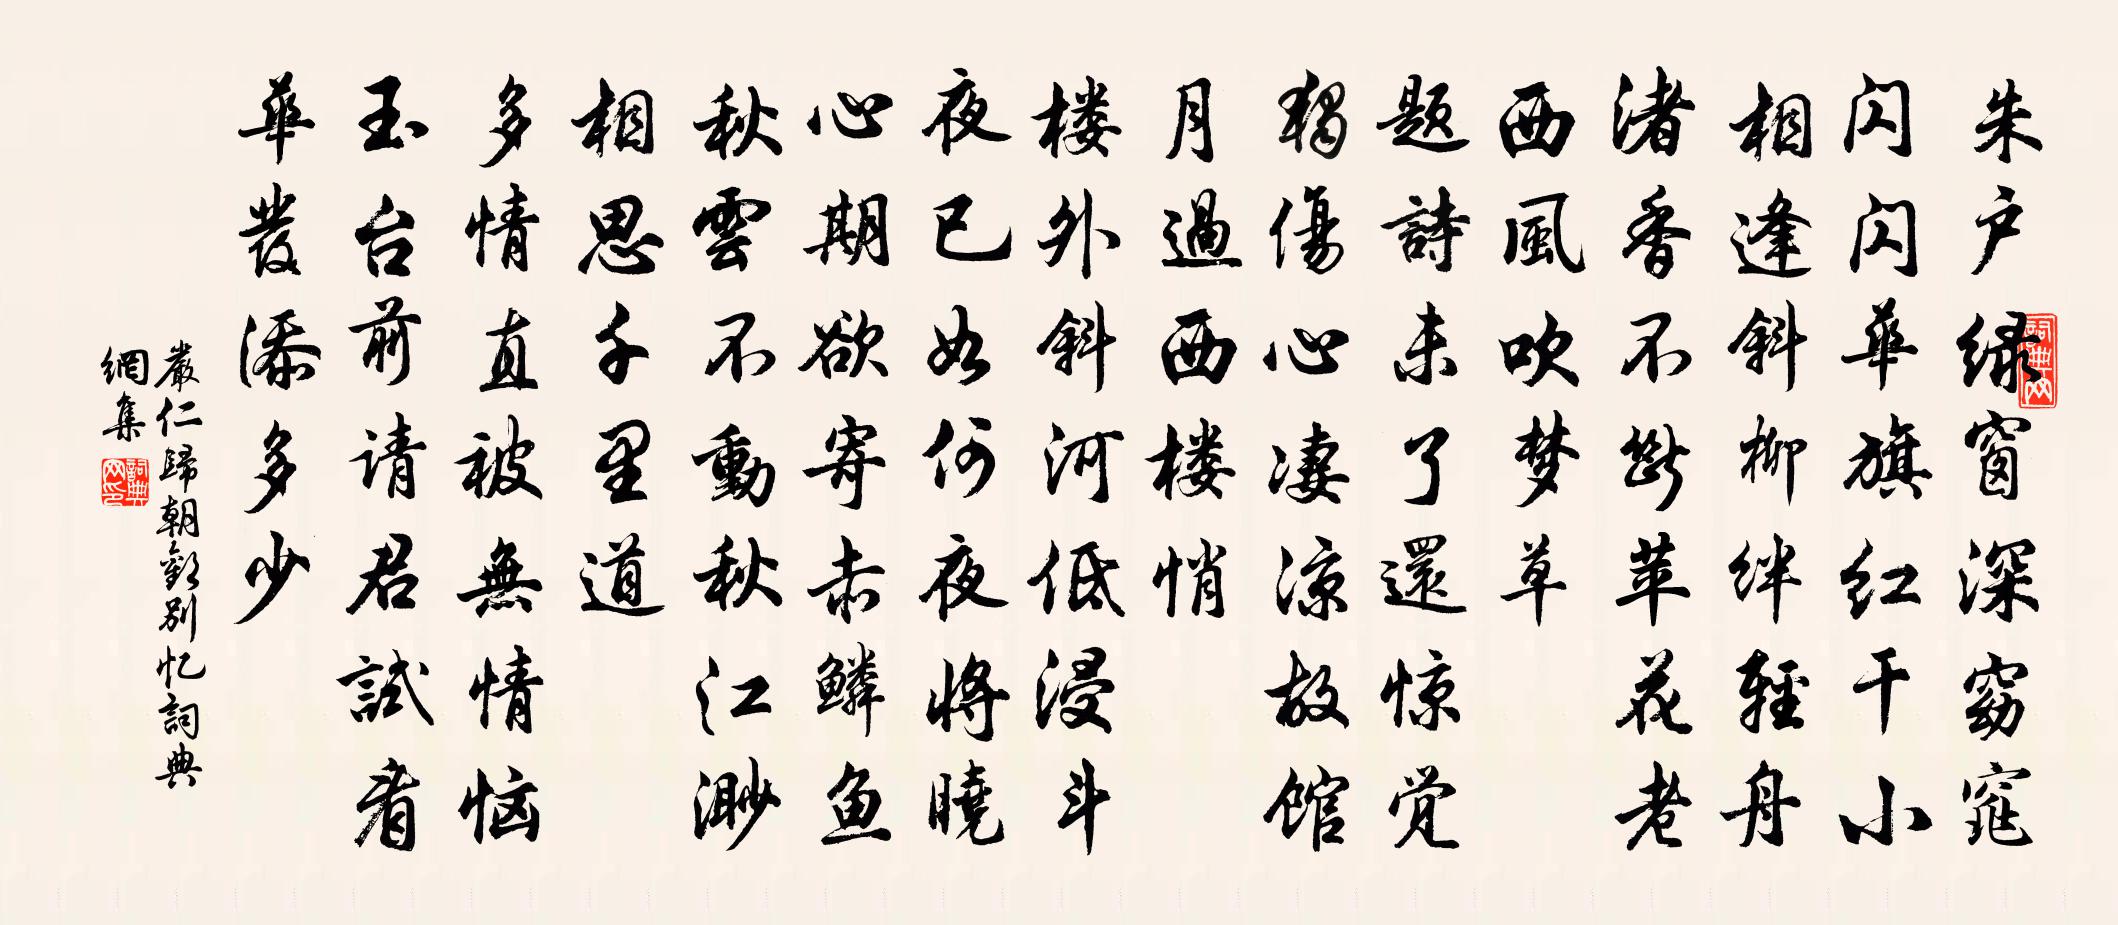 朱户绿窗深窈窕
闪闪華旗红干小
相逢斜柳绊輕舟
渚香不断苹花老
西風吹梦草
题詩未了還惊觉
獨傷心凄凉故馆
月過西楼悄
楼外斜河低浸斗
夜已如何夜将曉
心期欲寄赤鳞鱼
秋雲不動秋江渺
相思千里道
多情直被無情恼
玉台前请君試看
華发添多少
嚴仁歸朝歡别忆詞典
網集
詞典网
詞典网印